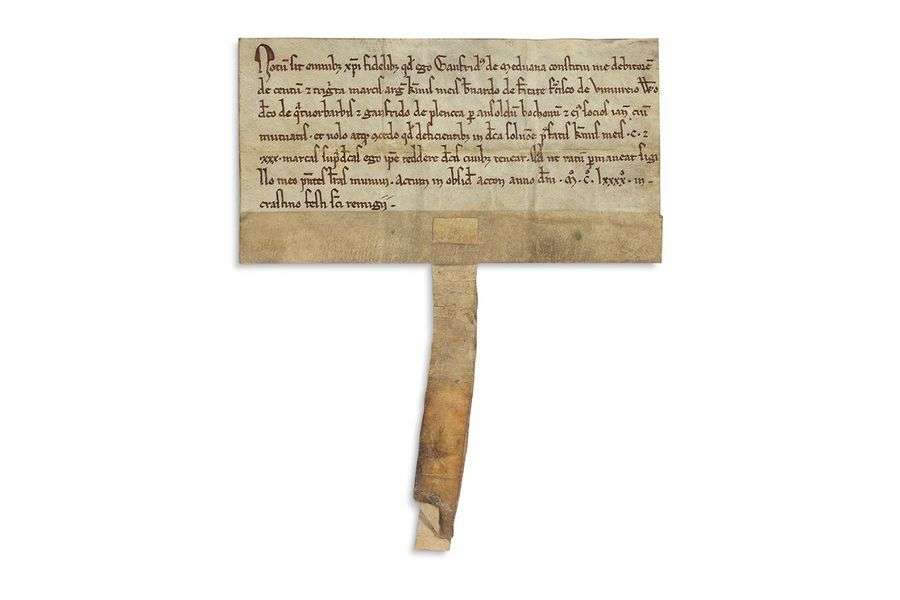 Notũ sit omnibꝫ xp̃i fidelibꝫ qđ ego Gaufridꝰ de Meduana constitui me debitorẽ
de centũ ⁊ trig̃ta marcis arg̃ kr̃mis meis b̃nardo de fr̃tate de Vimureio
dc̃o de q̃tuorbarbis ⁊ gaufrido de plencta ꝑ ansoldũ bochonũ ⁊ eꝰ socios ianũ ciuĩ
mutuatis · et uolo atqꝫ ꝯcedo qđ deficientibꝫ in dc̃a soluc̃õe p̃fatis kr̃mis meis · C · ⁊
xxx · marcas sup̃dc̃as ego ip̃e reddere dc̃is ciuibꝫ tenear · Qđ ut ratũ ꝑmaneat sigi
llo meo p̃ntes lr̃as muniui · Actum in obsid̃ accon anno dñi · M̊ · C̊ · lxxxx̊ · in
crastino festi sc̃i remigij ·